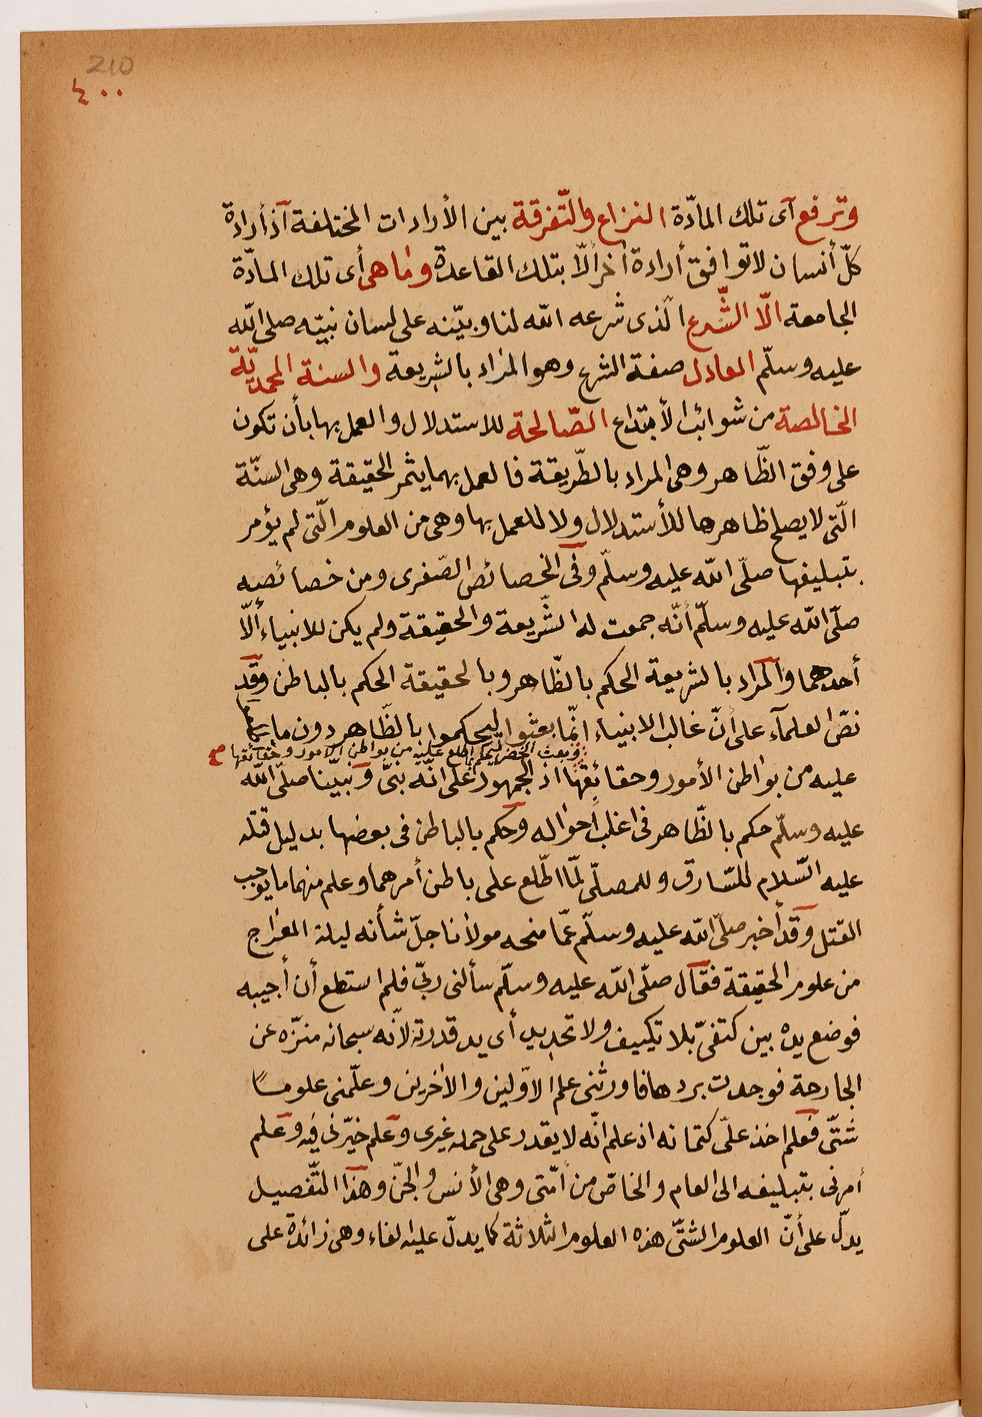 210
٤٠٠
وترفع آى تلك المادّة النزاع والتّفرقة بين الأرادات المختلفة آذ أرادة
كلّ أنسان لا توافق أرادة أخر ألاّ بتلك القاعدة وما هى أى تلك المادّة
الجامعة الاّ الشّرع الّذى شرعه الله لنا وبيّنه على لسان نبيّه صلى الله
عليه وسلّم العادل صفة الشرع وهو المراد بالشريعة والسنة المحمديّة
الخالصة من شوائب الأبتداع الصّالحة للاستدلال والعمل بها بأن تكون
على وفق الظّاهر وهى المراد بالطّريقة فالعمل بهما يثمر الحقيقة وهى السنّة
الّتى لا يصلح ظاهرها للأستدلال ولا للعمل بها وهى من العلوم الّتى لم يؤمر
بتبليغها صلّى الله عليه وسلّم وفى الخصائص الصّغرى ومن خصائصه
صلّى الله عليه وسلّم أنّه جمعت له الشّريعة والحقيقة ولم يكن للانبياء ألاّ
أحدهما والمراد بالشريعة الحكم بالظّاهر وبالحقيقة الحكم بالباطن وقد
نصّ العلمآء على أنّ غالب الانبياء انّما بعثوا ليحكموا بالظّاهر دون ما
وبعث الخضر ليحكم بما اطلع عليه من بواطن الامور وحقائقها صح
عليه من بواطن الأمور وحقائقها اذ الجمهور على انّه نبىّ ونبيّنا صلّى الله
عليه وسلّم حكم بالظّاهر فى اغلب أحواله وحكم بالباطن فى بعضها بدليل قتله
عليه السّلام للسّارق وللمصلّى لمّا اطّلع على باطن أمرهما وعلم منهما ما يوجب
القتل وقد أخبر صلّى الله عليه وسلّم عمّا منحه مولانا جلّ شأنه ليلة المعراج
من علوم الحقيقة فقال صلّى الله عليه وسلّم سألنى ربّى فلم استطع أن أجيبه
فوضع يده بين كتفىّ بلا تكييف ولا تحديد أى يد قدرته لأنّه سبحانه منزّه عن
الجارحة فوجدت بردها فاورثنى علم الاوّلين والأخرين وعلّمنى علوماً
شتّى فعلم اخذ علىّ كتمانه اذ علم انّه لا يقدر على حمله غيرى وعلم خيّرنى فيه وعلم
أمرنى بتبليغه الى العام والخاصّ من أمّتى وهى الأنس والجنّ وهذا التّفصيل
يدلّ على أنّ العلوم الشتّى هذه العلوم الثلاثة كما يدلّ عليه الفاء وهى زائدة على